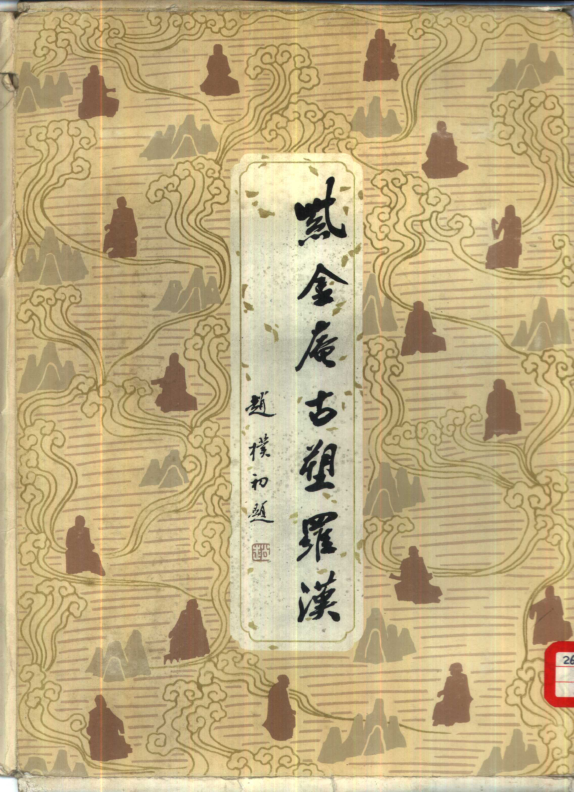 紫金庵古塑羅漢
趙樸初題
26